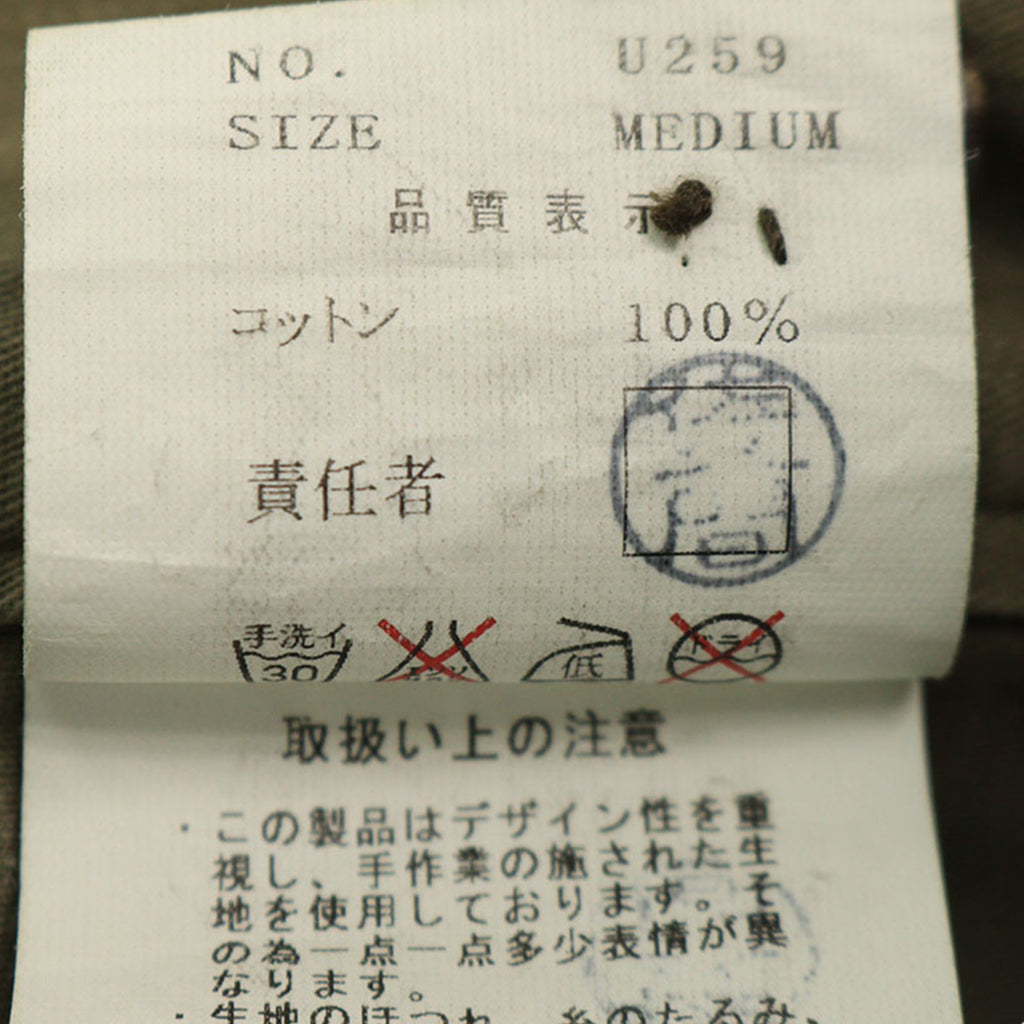 NO. U259
SIZE MEDIUM
品質表示
コットン 100%
責任者
手洗イ
30
低
ドライ
取扱い上の注意
・この製品はデザイン性を重
視し、手作業の施された生
地を使用しております。そ
の為一点一点多少表情が異
なります。
・生地のほつれ、糸のたるみ、